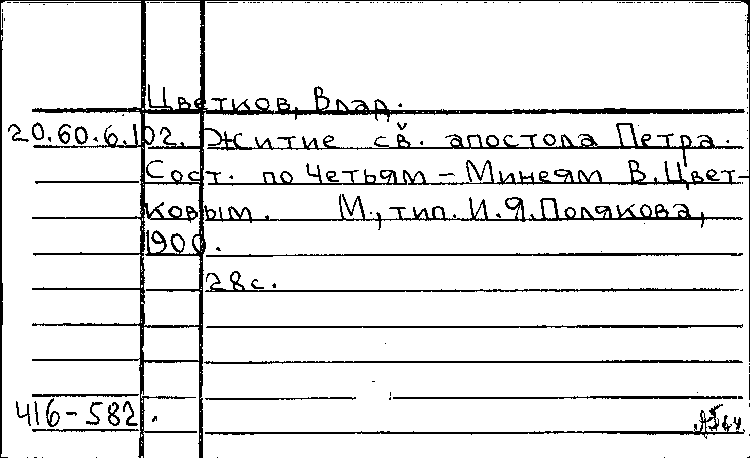 Цветков, Влад.
20.60.6.102. Житие св. апостола Петра.
Сост. по Четьям - Минеям В. Цвет-
ковым. М., тип. И. Я. Полякова,
1900.
28 с.
416-582.